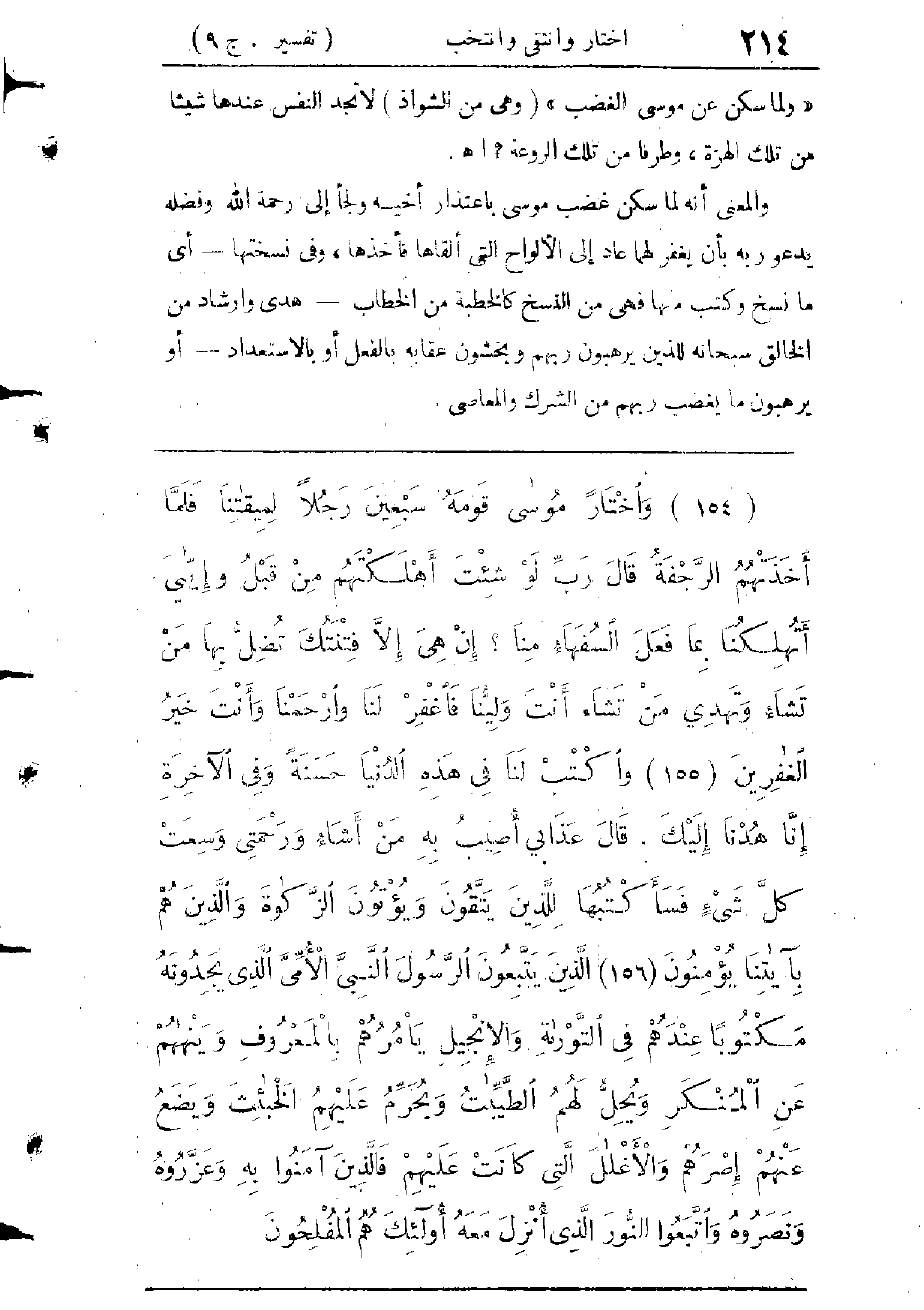 ٢١٤ اختار وانتقى وانتخب ( تفسير . ج ٩ )
« ولما سكن عن موسى الغضب » ( وهى من الشواذ ) لا تجد النفس عندها شيئا
من تلك الهزة ، وطرفا من تلك الروعة ? ا ه .
والمعنى أنه لما سكن غضب موسى باعتذار أخيه ولجأ إلى رحمة الله وفضله
يدعو ربه بأن يغفر لهما عاد إلى الألواح التى ألقاها فأخذها ، وفى نسختها — أى
ما نسخ وكتب منها فهى من النسخ كالخطبة من الخطاب — هدى وارشاد من
الخالق سبحانه للذين يرهبون ربهم ويخشون عقابه بالفعل أو بالاستعداد — أو
يرهبون ما يغضب ربهم من الشرك والمعاصى .
( ١٥٤ ) وَٱخْتَارَ مُوسَٰى قَوْمَهُ سَبْعِينَ رَجُلاً لِمِيقَٰتِنَا فَلَمَّا
أَخَذَتْهُمُ الرَّجْفَةُ قَالَ رَبِّ لَوْ شِئْتَ أَهْلَكْتَهُم مِنْ قَبْلُ وإِيَّٰىَ
أَتُهلِكُنَا بِمَا فَعَلَ ٱلسُّفَهَاءِ مِنَا ؟ إِنْ هِىَ إِلاَّ فِتْنَتُكَ تُضِلُّ بِهَا مَنْ
تَشَاءِ وَتَهدِي مَنْ تَشَاء أَنْتَ وَلِيُّنَا فَٱغْفِرْ لَنَا وٱرْحَمْنَا وَأَنْتَ خَيرُ
ٱلغَٰفِرِينَ ( ١٥٥ ) وٱكْتُبْ لَنَا فِى هَذِهِ ٱلدُنْيَا حَسَنَةً وَفِى ٱلآخِرَةِ
إِنَّا هُدْنَا إِلَيْكَ . قَالَ عَذَابي أُصِيبُ بِهِ مَنْ أَشَاءُ وَرَحْمَتِى وَسِعَتْ
كلَّ شَىْءٍ فَسَأَكْتُبُهَا لِلَّذِينَ يَتَّقُونَ وَيُؤْتُونَ ٱلزَّكَوٰةَ وَٱلَّذِينَ هُمْ
بِآيَٰتِنَا يُؤْمِنُونَ (١٥٦) الَّذِينَ يَتَّبِعُونَ ٱلرَّسُولَ ٱلنَّبِىَّ ٱلْأُمِّىَّ ٱلَّذِى يَجِدُونَهُ
مَكْتُوبًا عِنْدَهُمْ فِى ٱلتَّوْرَٰةِ وَٱلإِنْجِيلِ يَأْمُرُهُمْ بِالْمَعْرُوفِ وَيَنْهَٰهُمْ
عَنِ ٱلْمُنْكَرِ وَيُحِلُّ لَهُمُ ٱلطَّيِّبَٰتُ وَيُحَرِّمُ عَلَيْهِمُ الخَبَٰئِثَ وَيَضَعُ
عَنْهُمْ إِصْرَهُمْ وَالْأَغْلَٰلَ ٱلَّتِى كَانَتْ عَلَيْهِمْ فَالَّذِينَ آمَنُوا بِهِ وَعَزَّرُوهُ
وَنَصَرُوهُ وَٱتَّبَعُوا النُّورَ الَّذِى أُنْزِلَ مَعَهُ أُولَٰئِكَ هُمُ ٱلمُفْلِحُونَ